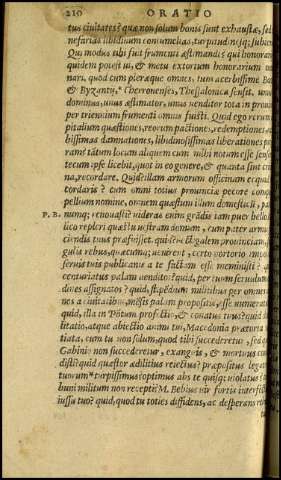 210 ORATIO
tus ciuitates? quæ non solum bonis sunt exhaustæ, sed
nefarias libidinum contumelias, turpitudinesq; subierunt
Qui modus tibi fuit frumenti æstimandi? qui honorarij
quidem potest ui, & metu extortum honorarium
nari. quod cum pleræque omnes, tum acerbissime
& Byzantij, Cherronenses, Thessalonica sensit. unus
dominus, unus æstimator, unus uenditor tota in prouincia
per triennium frumenti omnis fuisti. Quid ego rerum
pitalium quæstiones, reorum pactiones, redemptiones
bissimas damnationes, libidinosissimas liberationes
ram? tātum locum aliquem cum mihi notum esse
tecum ipse licebit, quot in eo genere, & quanta sint
na, recordare. Quid? illam armorum officinam
tordaris? cum omni totius prouinciæ pecore
pellium nomine, omnem quæstum illum domesticū,
P. B. numq; renouasti? uideras enim grādis iam puer bello
lico repleri quæstu uestram domum, cum pater
ciendis tuus præfuisset. quid?
gulis rebus, quæcunq; uenirent, certo portorio
seruis tuis publicanis a te factam esse meministi?
centuriatus palam uendito? quid, per
dones assignatos? quid,
nes a ciuitatibus, mēsis palam propositis, esse numerata?
quid, illa in Pōtum profectio, & conatus tuus? quid
litatio, atque abiectio animi tui, Macedonia prætoria
tiata, cum tu non solum, quod tibi succederetur, sed
Gabinio non succederetur, exanguis, & mortuus
disti? quid quæstor ædilitius reiectus? præpositus
tuorum turpissimus? optimus abs te quisq; uiolatus?
buni militum non recepti? M. Bebius uir fortis
iussu tuo? quid, quod tu toties diffidens, ac desperans